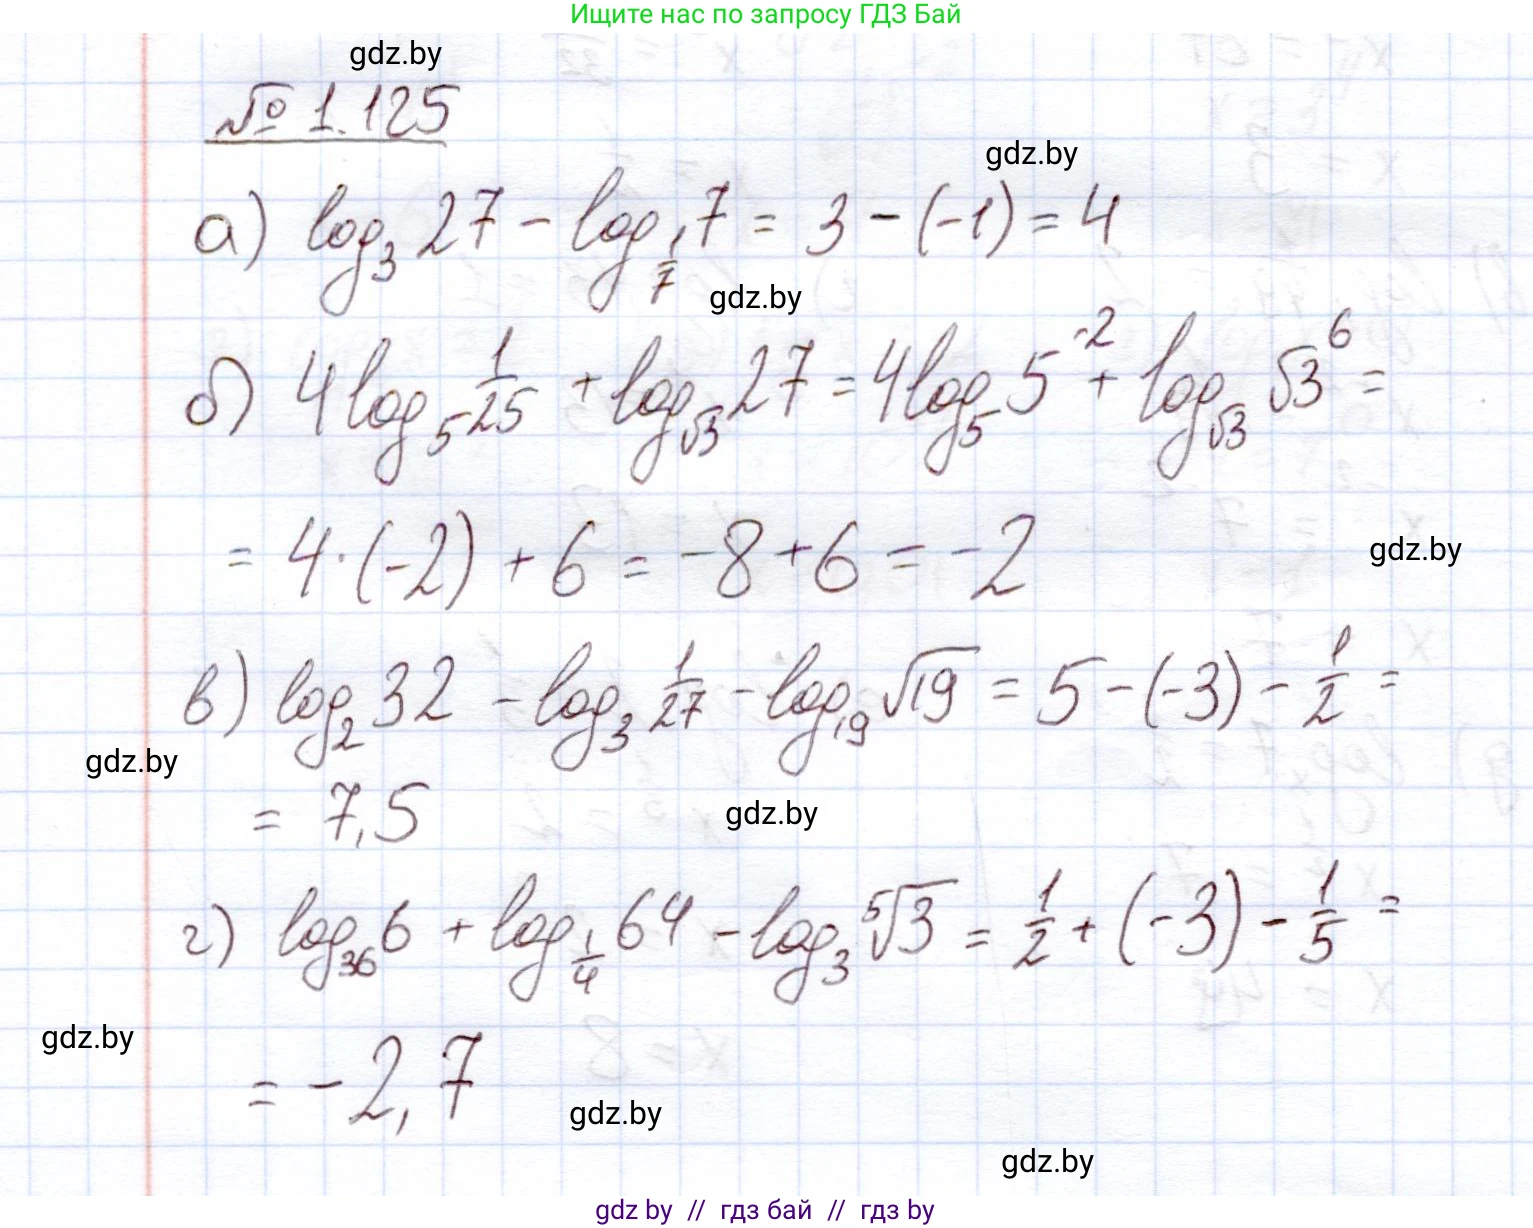 Ищите нас по запросу ГДЗ Бай
gdz.by
№ 1.125
gdz.by
а) log₃ 27 - log_{1/7} 7 = 3 - (-1) = 4
gdz.by
б) 4 log₅ 1/25 + log_{√3} 27 = 4 log₅ 5⁻² + log_{√3} √3⁶ =
= 4 · (-2) + 6 = -8 + 6 = -2
gdz.by
в) log₂ 32 - log₃ 1/27 - log₁₉ √19 = 5 - (-3) - 1/2 =
gdz.by
= 7,5
gdz.by
г) log₃₆ 6 + log_{1/4} 64 - log₃ ⁵√3 = 1/2 + (-3) - 1/5 =
gdz.by
= -2,7
gdz.by
gdz.by
gdz by // гдз бай // гдз by